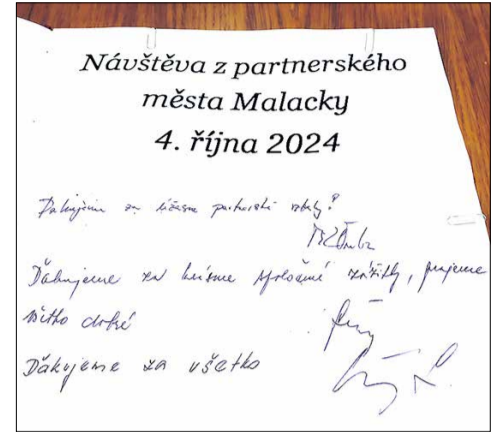 Návštěva z partnerského
města Malacky
4. října 2024
Ďakujeme za úžasné partnerské vzťahy!
Ďakujeme za krásne spoločné zážitky, prajeme
všetko dobré
Ďakujeme za všetko